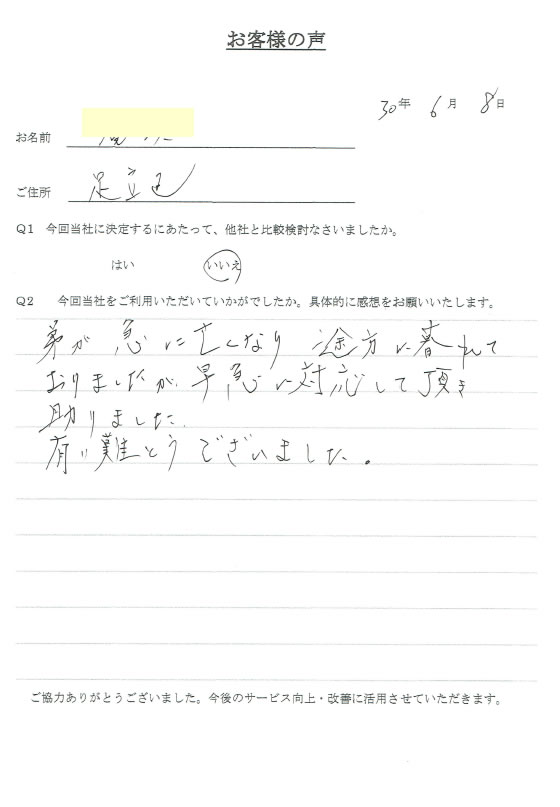 お客様の声
30年 6月 8日
お名前
ご住所 足立区
Q1 今回当社に決定するにあたって、他社と比較検討なさいましたか。
はい いいえ
Q2 今回当社をご利用いただいていかがでしたか。具体的に感想をお願いいたします。
弟が急に亡くなり途方に暮れて
おりましたが、早急に対応して頂き
助りました。
有り難とうございました。
ご協力ありがとうございました。今後のサービス向上・改善に活用させていただきます。